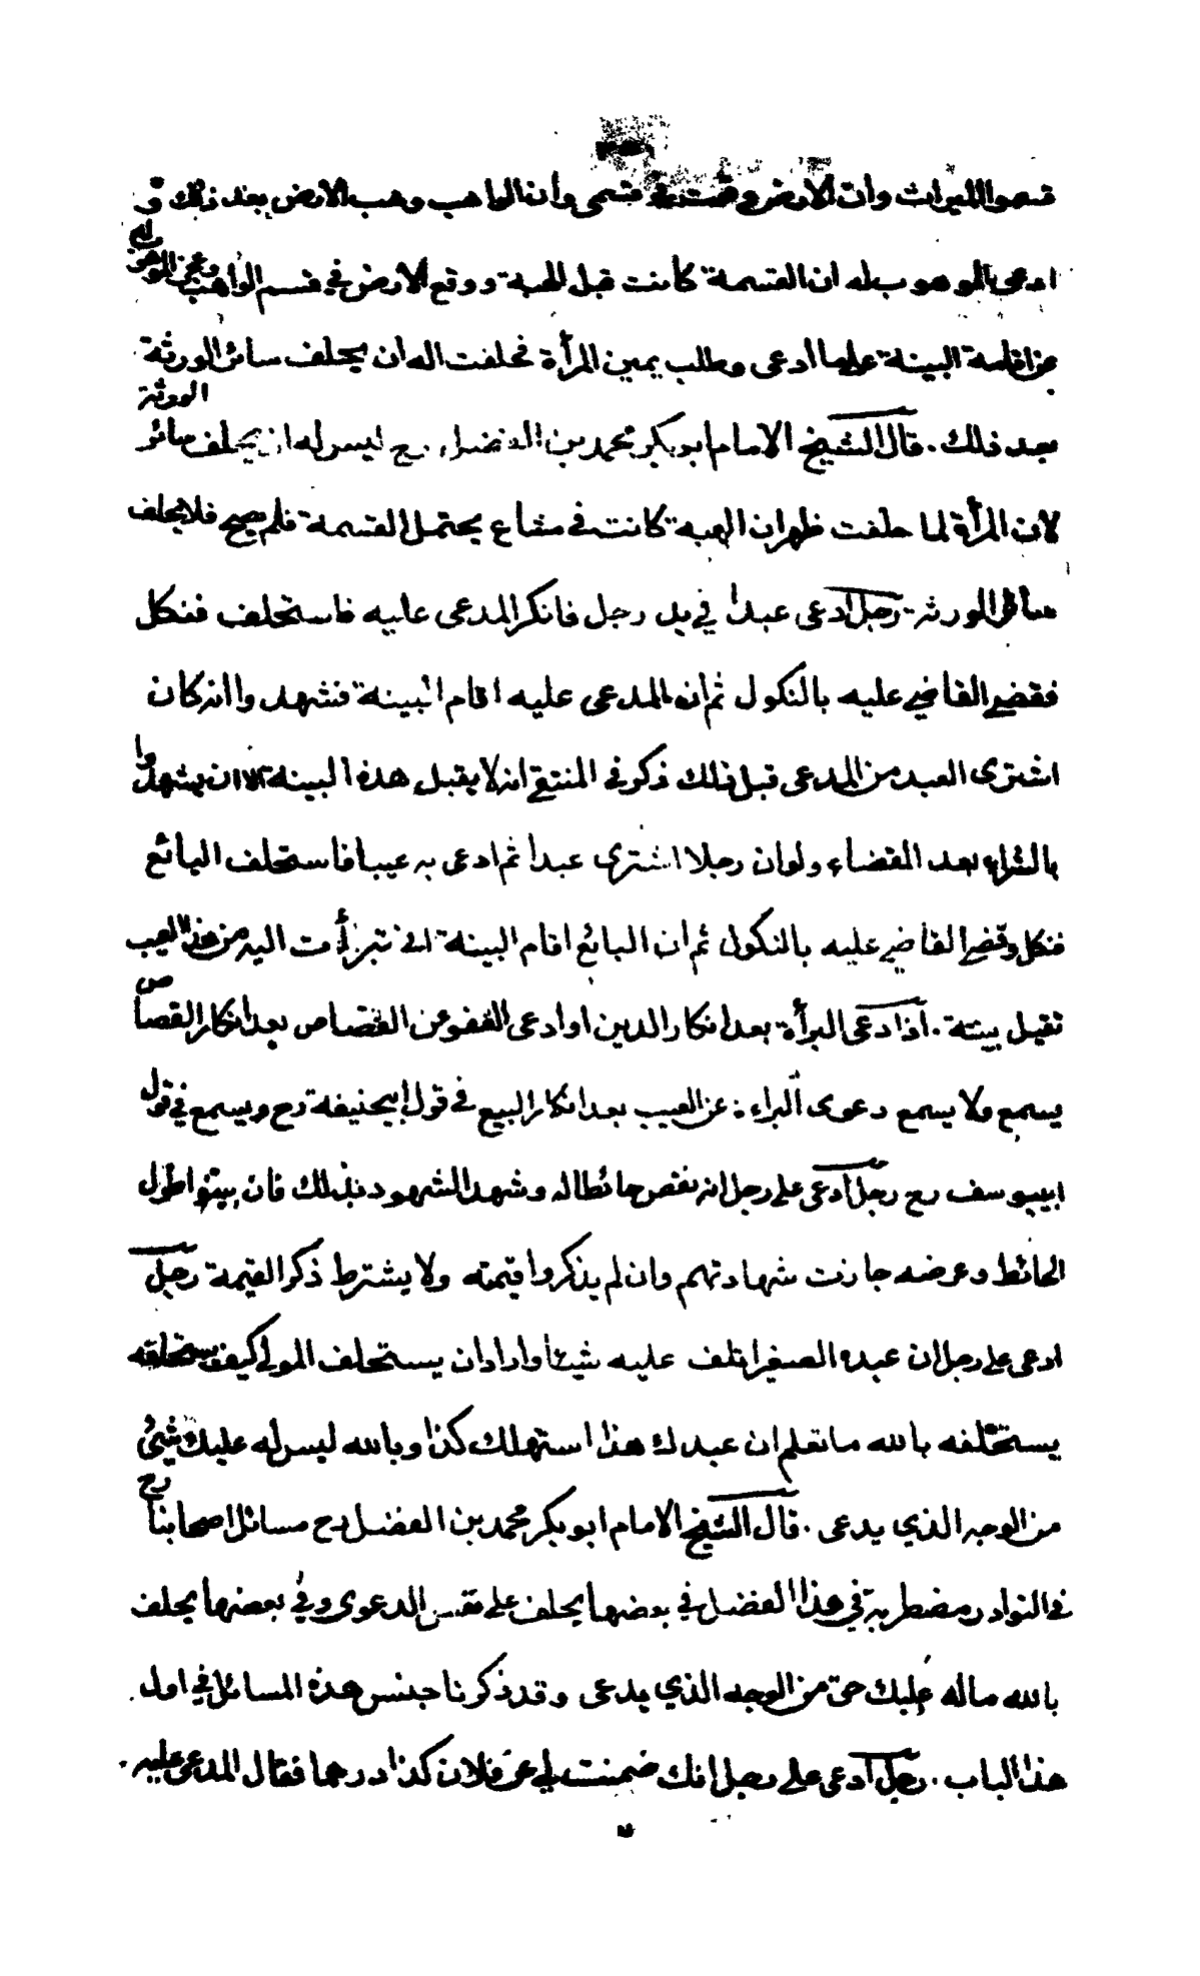 قسموا الميراث وان الارض وقعت في قسمى وأن الواهب وهب الارض بعد ذلك و
ادعى الموهوب له ان القسمة كانت قبل الهبة ووقع الارض في قسم الواهب وعجز الموهوب له
عن اقامة البينة على ما ادعى وطلب يمين المرأة فحلفت اله ان يحلف سائر الورثة
بعد ذلك . قال الشيخ الامام ابو بكر محمد بن الفضل رح ليس له ان يحلف سائر الورثة
لان المرأة لما حلفت ظهر ان الهبة كانت في مشاع يحتمل القسمة فلم يصح فلا يحلف
سائر الورثة رجل ادعى عبدا في يد رجل فانكر المدعى عليه فاستحلف فنكل
فقضى القاضي عليه بالنكول ثم ان المدعى عليه اقام البينة فشهدوا انه كان
اشترى العبد من المدعى قبل ذلك ذكر في المنتقى انه لا يقبل هذه البينة الا ان يشهدوا
بالشراء بعد القضاء ولو ان رجلا اشترى عبدا ثم ادعى به عيبا فاستحلف البائع
فنكل وقضى القاضي عليه بالنكول ثم ان البائع اقام البينة اني تبرأت اليه من هذا العيب
تقبل بينته . اذا ادعى البرأة بعد انكار الدين او ادعى العفو عن القصاص بعد انكار القصاص
يسمع ولا يسمع دعوى البراءة عن العيب بعد انكار البيع في قول ابيحنيفة رح ويسمع في قول
ابييوسف رح رجل ادعى على رجل انه نقص حائطا له وشهد الشهود بذلك فان بينوا طول
الحائط وعرضه جازت شهادتهم وان لم يذكروا قيمته ولا يشترط ذكر القيمة رجل
ادعى على رجل ان عبده الصغير اتلف عليه شيئا واراد ان يستحلف المولى كيف يستحلفه
يستحلفه بالله ما تعلم ان عبدك هذا استهلك كذا وبالله ليس له عليك شئ
من الوجه الذي يدعى . قال الشيخ الامام ابو بكر محمد بن الفضل رح مسائل اصحابنا رح
في النوادر مضطربة في هذا الفصل في بعضها يحلف على نفس الدعوى وفي بعضها يحلف
بالله ماله عليك حق من الوجه الذي يدعى وقد ذكرنا جنس هذه المسائل في اول
هذا الباب . رجل ادعى على رجل انك ضمنت لي عن فلان كذا درهما فقال المدعى عليه